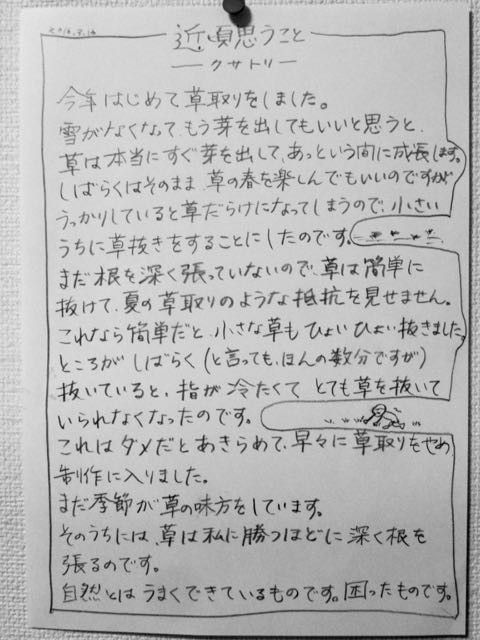 近頃思うこと
— クサトリ —
今年はじめて草取りをしました。
雪がなくなって、もう芽を出してもいいと思うと、
草は本当にすぐ芽を出して、あっという間に成長します。
しばらくはそのまま、草の春を楽しんでもいいのですが
うっかりしていると草だらけになってしまうので、小さい
うちに草抜きをすることにしたのです。
まだ根を深く張っていないので、草は簡単に
抜けて、夏の草取りのような抵抗を見せません。
これなら簡単だと、小さな草もひょいひょい抜きました。
ところがしばらく(と言っても、ほんの数分ですが)
抜いていると、指が冷たくてとても草を抜いて
いられなくなったのです。
これはダメだとあきらめて、早々に草取りをやめ
制作に入りました。
まだ季節が草の味方をしています。
そのうちには、草は私に勝つほどに深く根を
張るのです。
自然とはうまくできているものです。困ったものです。